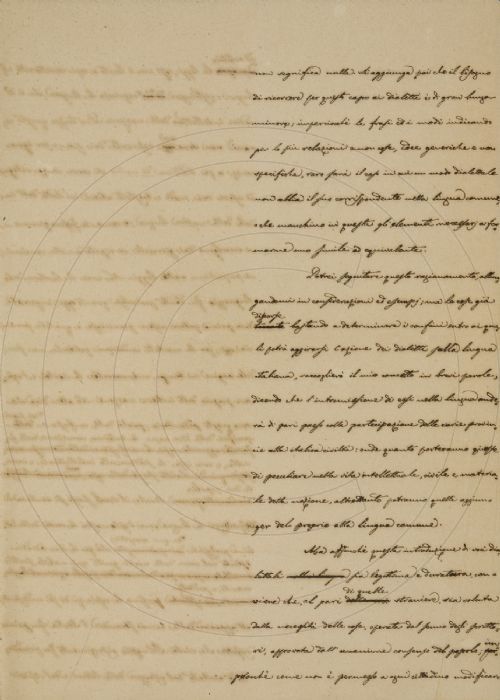 non significa nulla. Si aggiunga poi che il bisogno
di ricorrere per questo capo ai dialetti è di gran lunga
minore; imperciocchè le frasi ed i modi indicando
per lo più relazioni a non cose, idee generiche e non
specifiche, raro sarà il caso in cui un modo dialettale
non abbia il suo corrispondente nella lingua comune,
o che manchino in questa gli elementi necessarj a for
marne uno simile od equivalente.
Potrei seguitare questo ragionamento, allun
gandomi in considerazioni ed esempj; ma le cose già
discorse
bastando a determinare i confini entro ai qua
li potrà aggirarsi l'azione dei dialetti sulla lingua
italiana, raccoglierò il mio concetto in brevi parole,
dicendo che l'intromissione di essi nella lingua ande
rà di pari passo colla partecipazione delle varie provin
cie alla civiltà: onde quanto porteranno queste
di peculiare nella vita intellettuale, civile e materia
le della nazione, altrettanto potranno quelli aggiun
ger del proprio alla lingua comune.
Ma affinchè questa introduzione di voci dia
lettali sia legittima e duratura, con
di quelle
viene che, al pari straniere, sia voluta
dalla necessità delle cose, operata dal senno degli scritto
ri, approvata dall' unanime consenso del popolo,
poichè come non è permesso a ogni cittadino modificare